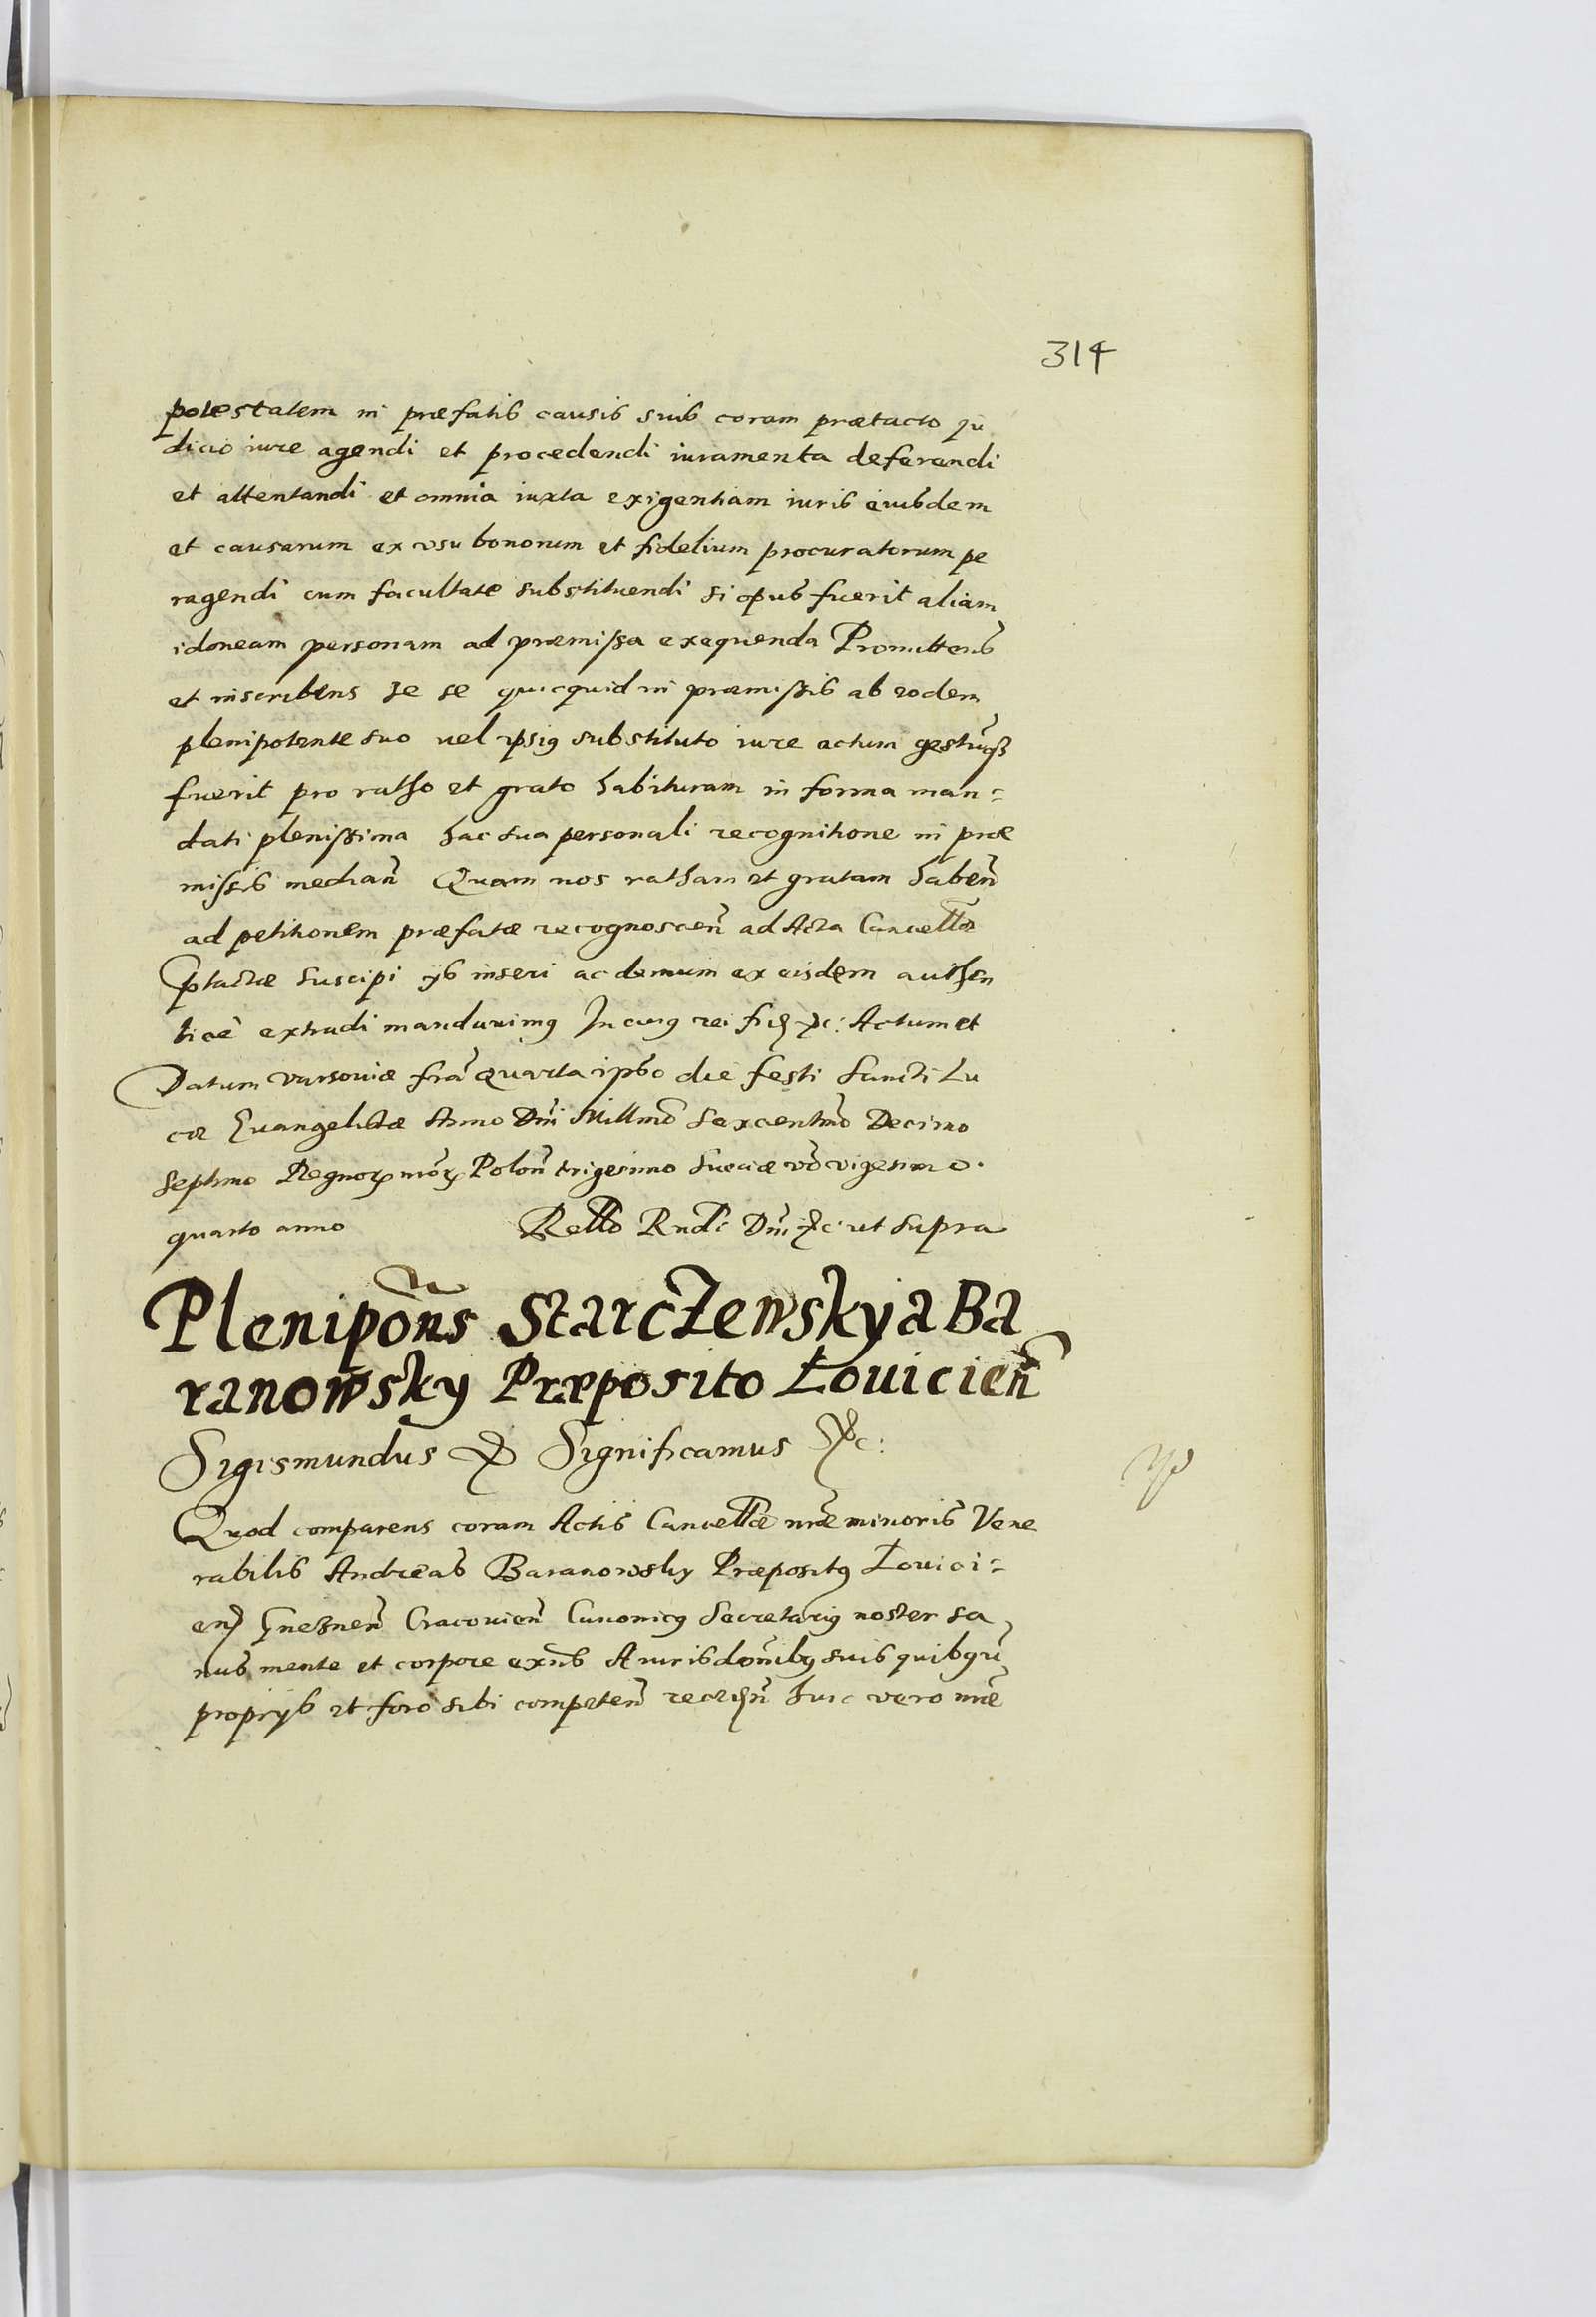 314
potestatem in præfatis causis suis coram prætacto ju
dicio iure agendi et procedendi iuramenta deferendi
et attentandi et omnia iuxta exigentiam iuris eiusdem
et causarum ex usu bonorum et fidelium procuratorum pe
ragendi cum facultate substituendi si opus fuerit aliam
idoneam personam ad præmissa exequenda Promittens
et inscribens se se quicquid in præmissis ab eodem
plenipotente suo uel ipsius substituto iure actum gestumqз
fuerit pro ratho et grato habituram in forma man=
dati plenissima hac sua personali recognitione in præ
missis median̄ Quam nos ratham et gratam haben̄
ad petitionem præfatæ recognoscen̄ ad Acta Cancellæ
ptactæ suscipi ijs inseri ac demum ex eisdem authen
tice extradi mandauimus In cuius rei fid &c: Actum et
Datum varsoviæ fra quarta ipso die festi Sancti Lu
cæ Evangelistæ Anno Dni Millmo Sexcentmo Decimo
septimo Regnor nror Polon̄ trigesimo Sueciæ vo vigesimo.
quarto anno Rello Rndi Dni &c ut supra
Plenipōns Starczewsky a Ba
ranowsky Præposito Łouicien̄
Sigismundus & Significamus &c:
Quod comparens coram Actis Cancellæ nræ minoris Vene
rabilis Andreas Baranowsky Præpositus Louici=
en Gneznen̄ Cracouien̄ Canonicus Secretarius noster sa
nus mente et corpore exns A iurisdonibus suis quibusuis
proprijs et foro sibi competen̄ receden̄ huic vero nræ